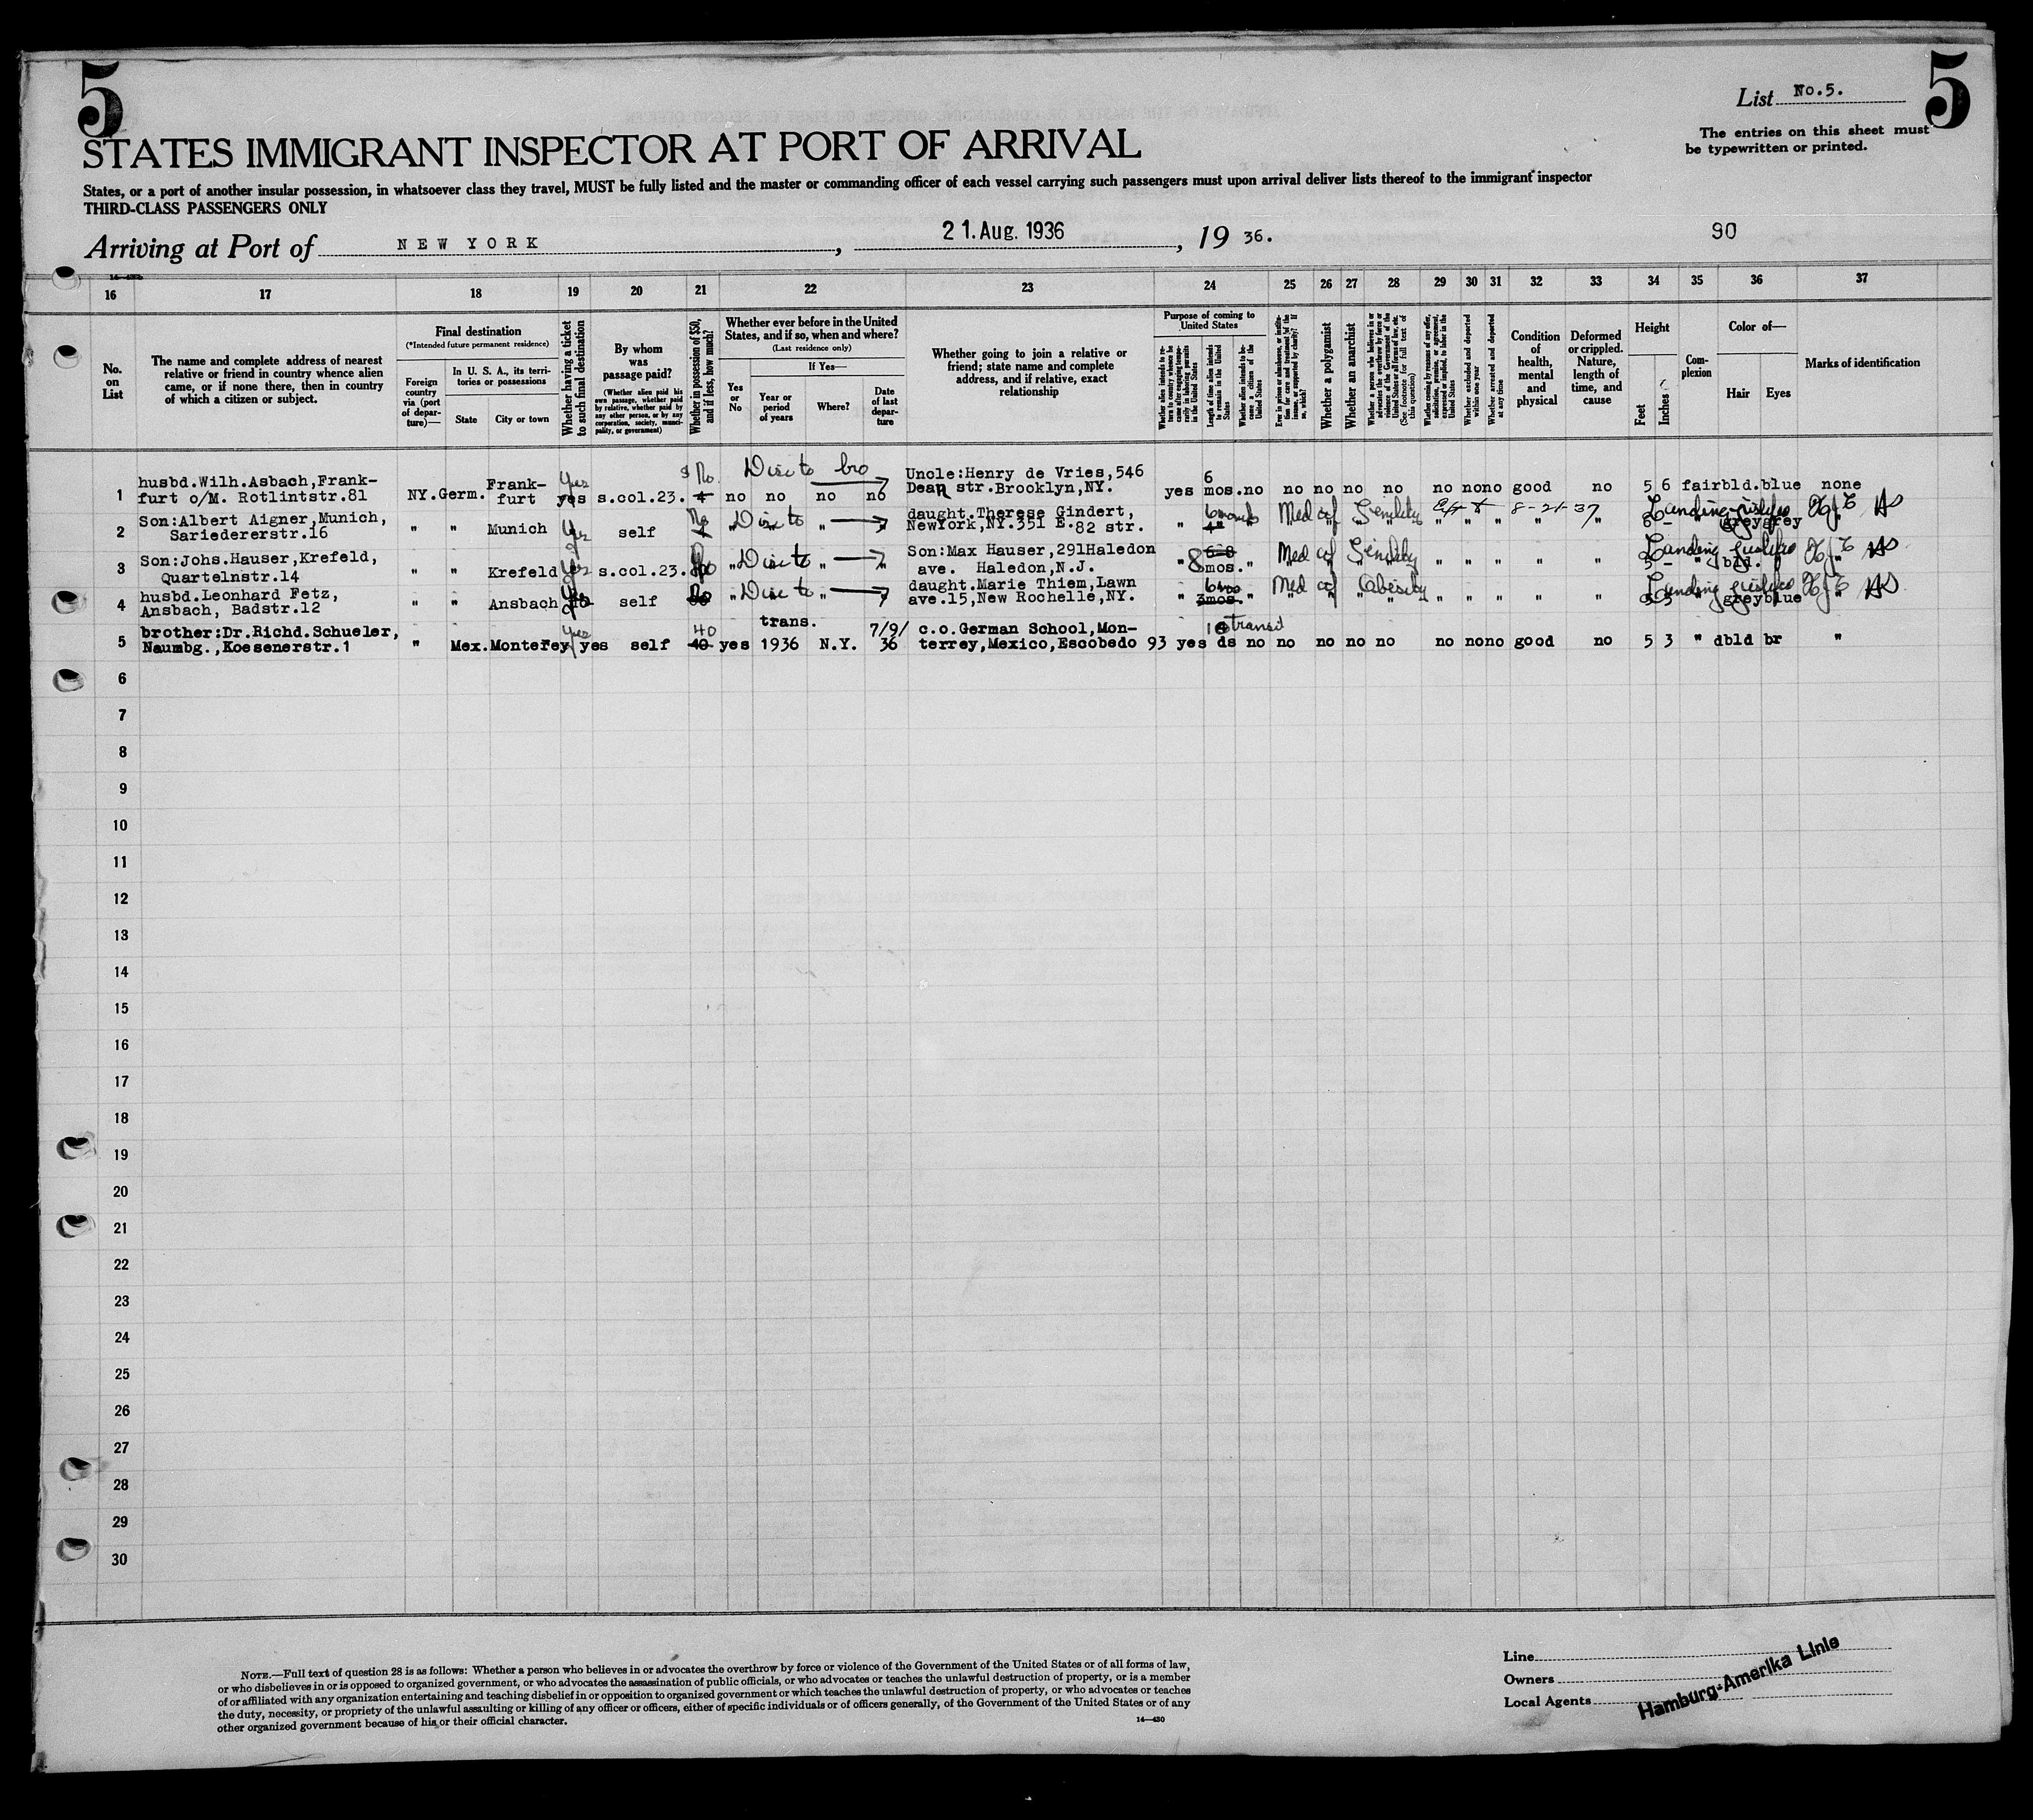 5
5
List No.5.
The entries on this sheet must
be typewritten or printed.
STATES IMMIGRANT INSPECTOR AT PORT OF ARRIVAL
States, or a port of another insular possession, in whatsoever class they travel, MUST be fully listed and the master or commanding officer of each vessel carrying such passengers must upon arrival deliver lists thereof to the immigrant inspector
THIRD-CLASS PASSENGERS ONLY
Arriving at Port of NEW YORK, 21.Aug.1936, 19 36.
90
16 17 18 19 20 21 22 23 24 25 26 27 28 29 30 31 32 33 34 35 36 37
No. on List
The name and complete address of nearest
relative or friend in country whence alien
came, or if none there, then in country
of which a citizen or subject.
Final destination
(*Intended future permanent residence)
Foreign country via (port of departure)—
In U. S. A., its territories or possessions
State
City or town
Whether having a ticket to such final destination
By whom was passage paid?
(Whether alien paid his own passage, whether paid by relative, whether paid by any other person, or by any corporation, society, municipality, or government)
Whether in possession of $50, and if less, how much?
Whether ever before in the United
States, and if so, when and where?
(Last residence only)
Yes or No
If Yes—
Year or period of years
Where?
Date of last departure
Whether going to join a relative or
friend; state name and complete
address, and if relative, exact
relationship
Purpose of coming to United States
Length of time alien intends to remain in the United States
Whether alien intends to become a citizen of the United States
Whether a polygamist
Whether an anarchist
Whether excluded and deported within one year
Whether arrested and deported at any time
Condition of health, mental and physical
Deformed or crippled. Nature, length of time, and cause
Height
Feet
Inches
Complexion
Color of—
Hair
Eyes
Marks of identification
Yes $ No Directo
1 husbd.Wilh.Asbach,Frank-
furt o/M. Rotlintstr.81 NY.Germ. Frank-
furt yes s.col.23. no no no no Uncle:Henry de Vries,546
Dean str.Brooklyn,NY. yes 6 mos.no no no no no no nono good no 5 6 fair bld.blue none
2 Son:Albert Aigner,Munich,
Sariedererstr.16 " " Munich self " Directo " daught.Therese Gindert,
NewYork,NY.351 E.82 str. " 6 months Med cf Senility 8-21-37 Landing grey grey
3 Son:Johs.Hauser,Krefeld,
Quartelnstr.14 " " Krefeld Yes s.col.23. " Directo " Son:Max Hauser,291Haledon
ave. Haledon,N.J. " 8 mos. " Med cf Senility Landing bld.
4 husbd.Leonhard Fetz,
Ansbach, Badstr.12 " " Ansbach self " Directo " daught.Marie Thiem,Lawn
ave.15,New Rochelle,NY. " 6mos 3mos " Med cf Obesity Landing grey blue
5 brother:Dr.Richd.Schueler,
Naumbg.,Koesenerstr.1 " Mex. Monterey yes self 40 40 yes trans. 1936 N.Y. 7/9/
36 c.o.German School,Mon-
terrey,Mexico,Escobedo 93 yes transit ds no no no no no no nono good no 5 3 " dbld br "
6
7
8
9
10
11
12
13
14
15
16
17
18
19
20
21
22
23
24
25
26
27
28
29
30
NOTE.—Full text of question 28 is as follows: Whether a person who believes in or advocates the overthrow by force or violence of the Government of the United States or of all forms of law,
or who disbelieves in or is opposed to organized government, or who advocates the assassination of public officials, or who advocates or teaches the unlawful destruction of property, or is a member
of or affiliated with any organization entertaining and teaching disbelief in or opposition to organized government or which teaches the unlawful destruction of property, or who advocates or teaches
the duty, necessity, or propriety of the unlawful assaulting or killing of any officer or officers, either of specific individuals or of officers generally, of the Government of the United States or of any
other organized government because of his or their official character.
14—430
Line
Owners
Local Agents
Hamburg-Amerika Linie